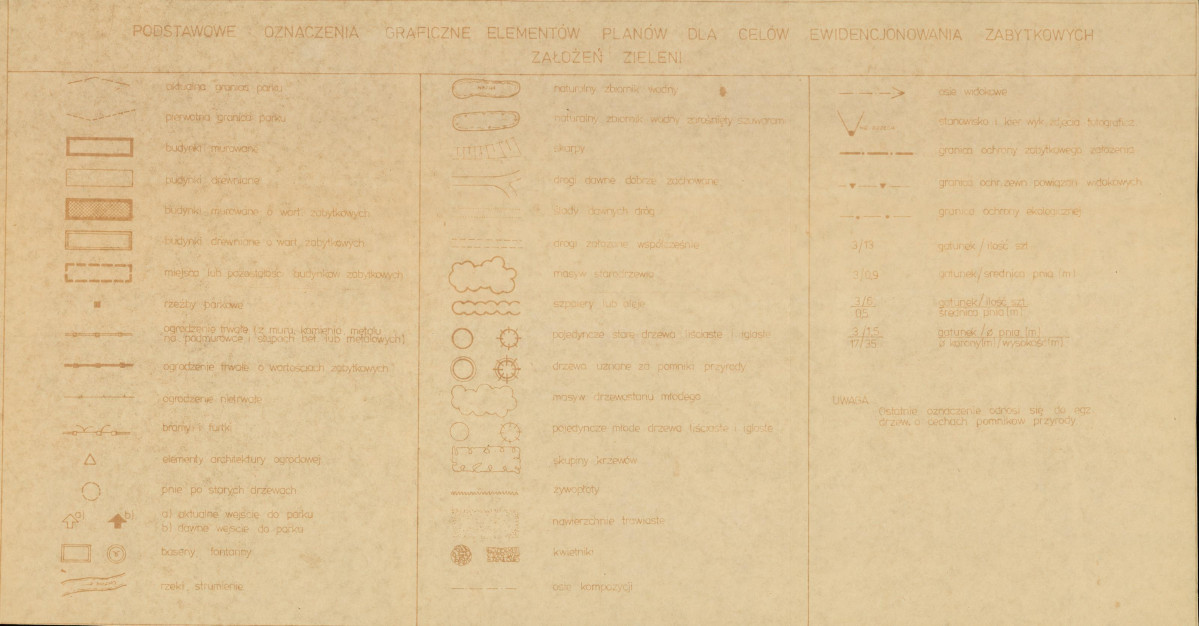 PODSTAWOWE OZNACZENIA GRAFICZNE ELEMENTÓW PLANÓW DLA CELÓW EWIDENCJONOWANIA ZABYTKOWYCH
ZAŁOŻEŃ ZIELENI
aktualna granica parku
pierwotna granica parku
budynki murowane
budynki drewniane
budynki murowane o wart. zabytkowych
budynki drewniane o wart. zabytkowych
miejsca lub pozostałości budynków zabytkowych
rzeźby parkowe
ogrodzenie trwałe (z muru, kamienia, metalu
na podmurówce i słupach bet. lub metalowych)
ogrodzenie trwałe o wartościach zabytkowych
ogrodzenie nietrwałe
bramy i furtki
elementy architektury ogrodowej
pnie po starych drzewach
a) b) a) aktualne wejście do parku
b) dawne wejście do parku
baseny, fontanny
rzeki, strumienie
naturalny zbiornik wodny
naturalny zbiornik wodny zarośnięty szuwarem
skarpy
drogi dawne dobrze zachowane
ślady dawnych dróg
drogi założone współcześnie
masyw starodrzewia
szpalery lub aleje
pojedyncze stare drzewa liściaste i iglaste
drzewa uznane za pomniki przyrody
masyw drzewostanu młodego
pojedyncze młode drzewa liściaste i iglaste
skupiny krzewów
żywopłoty
nawierzchnie trawiaste
kwietniki
osie kompozycji
osie widokowe
stanowisko i kier. wyk. zdjęcia fotograficz.
granica ochrony zabytkowego założenia
granica ochr. zewn. powiązań widokowych
granica ochrony ekologicznej
3/13 gatunek/ilość szt.
3/0,9 gatunek/średnica pnia [m]
3/6 gatunek/ilość szt.
0,5 średnica pnia [m]
3/1,5 gatunek/ø pnia [m]
17/35 ø korony[m]/wysokość[m]
UWAGA
Ostatnie oznaczenie odnosi się do egz.
drzew o cechach pomników przyrody